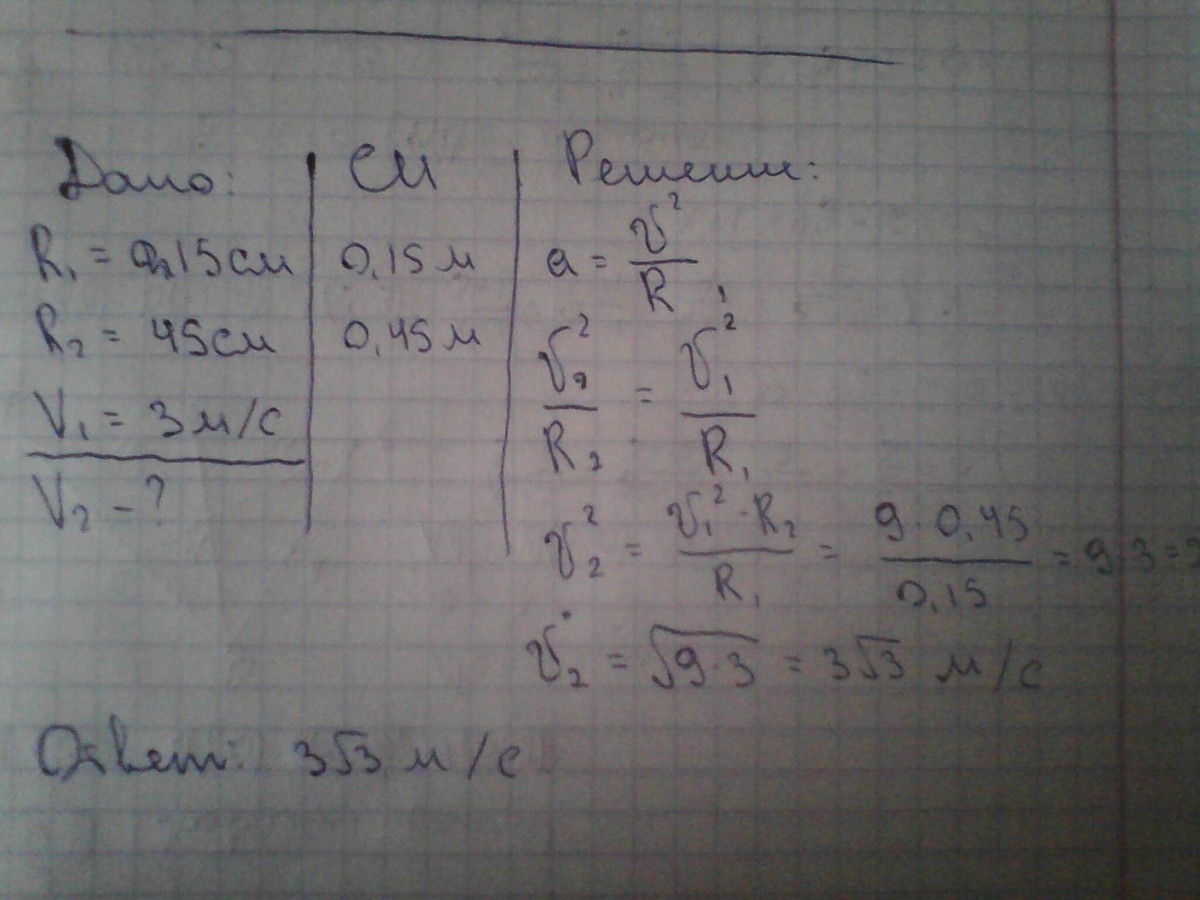 Дано:
R₁ = 0,15см
R₂ = 45см
V₁ = 3м/с
V₂ - ?
СИ
0,15м
0,45м
Решение:
a = v²/R,
v₂²/R₂ = v₁²/R₁
v₂² = v₁²·R₂/R₁ = 9·0,45/0,15 = 9·3=
v₂ = √9·3 = 3√3 м/с
Ответ: 3√3 м/с.